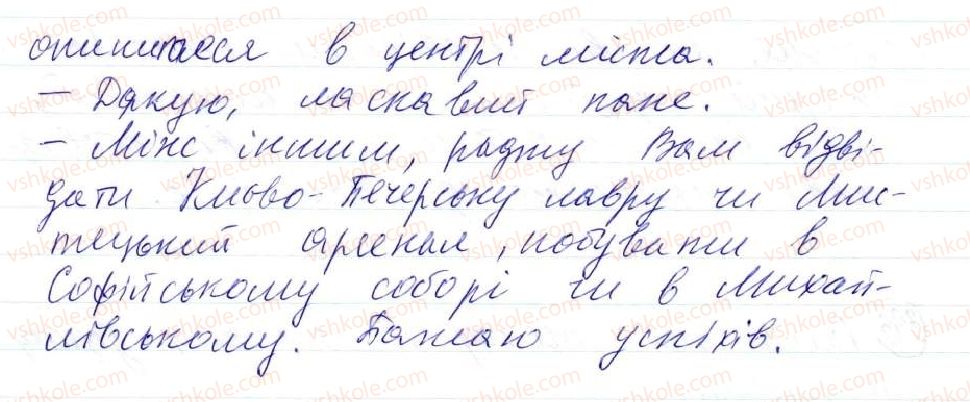 опинитеся в центрі міста.
– Дякую, ласкавий пане.
– Між іншим, раджу Вам відві-
дати Києво-Печерську лавру чи Мис-
тецький арсенал, побувати в
Софійському соборі чи в Михай-
лівському. Бажаю успіхів.